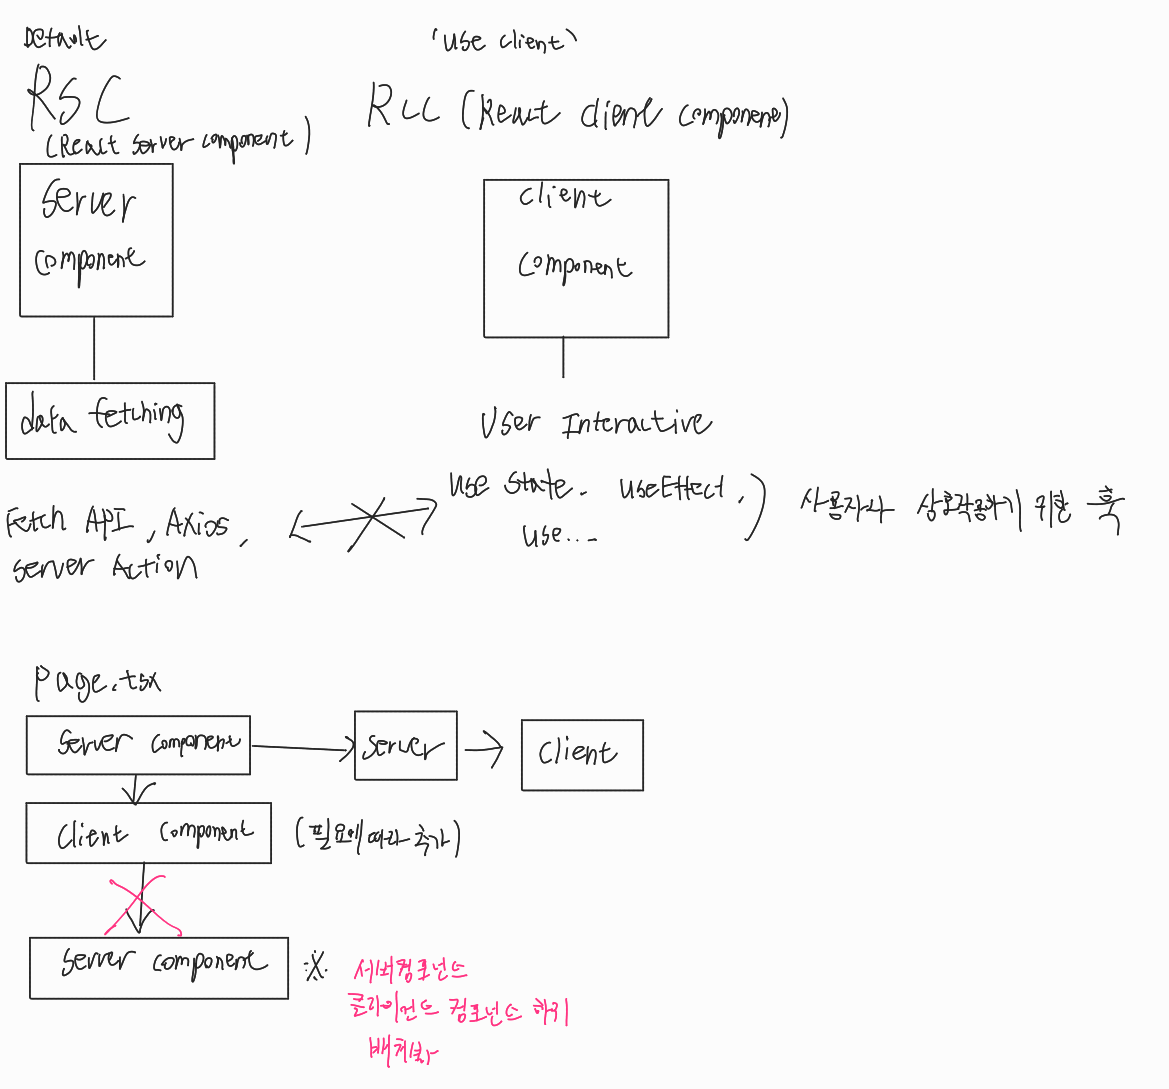 Default
RSC
(React Server component)
Server
component
data fetching
Fetch API, Axios,
server Action
'use client'
RCC (React client component)
client
component
User Interactive
use state. useEffect,
use...
사용자와 상호작용하기 위한 훅
Page.tsx
Server component
server
client
client component
(필요에 따라 추가)
server component
※
서버컴포넌트
클라이언트 컴포넌트 하위
배치불가